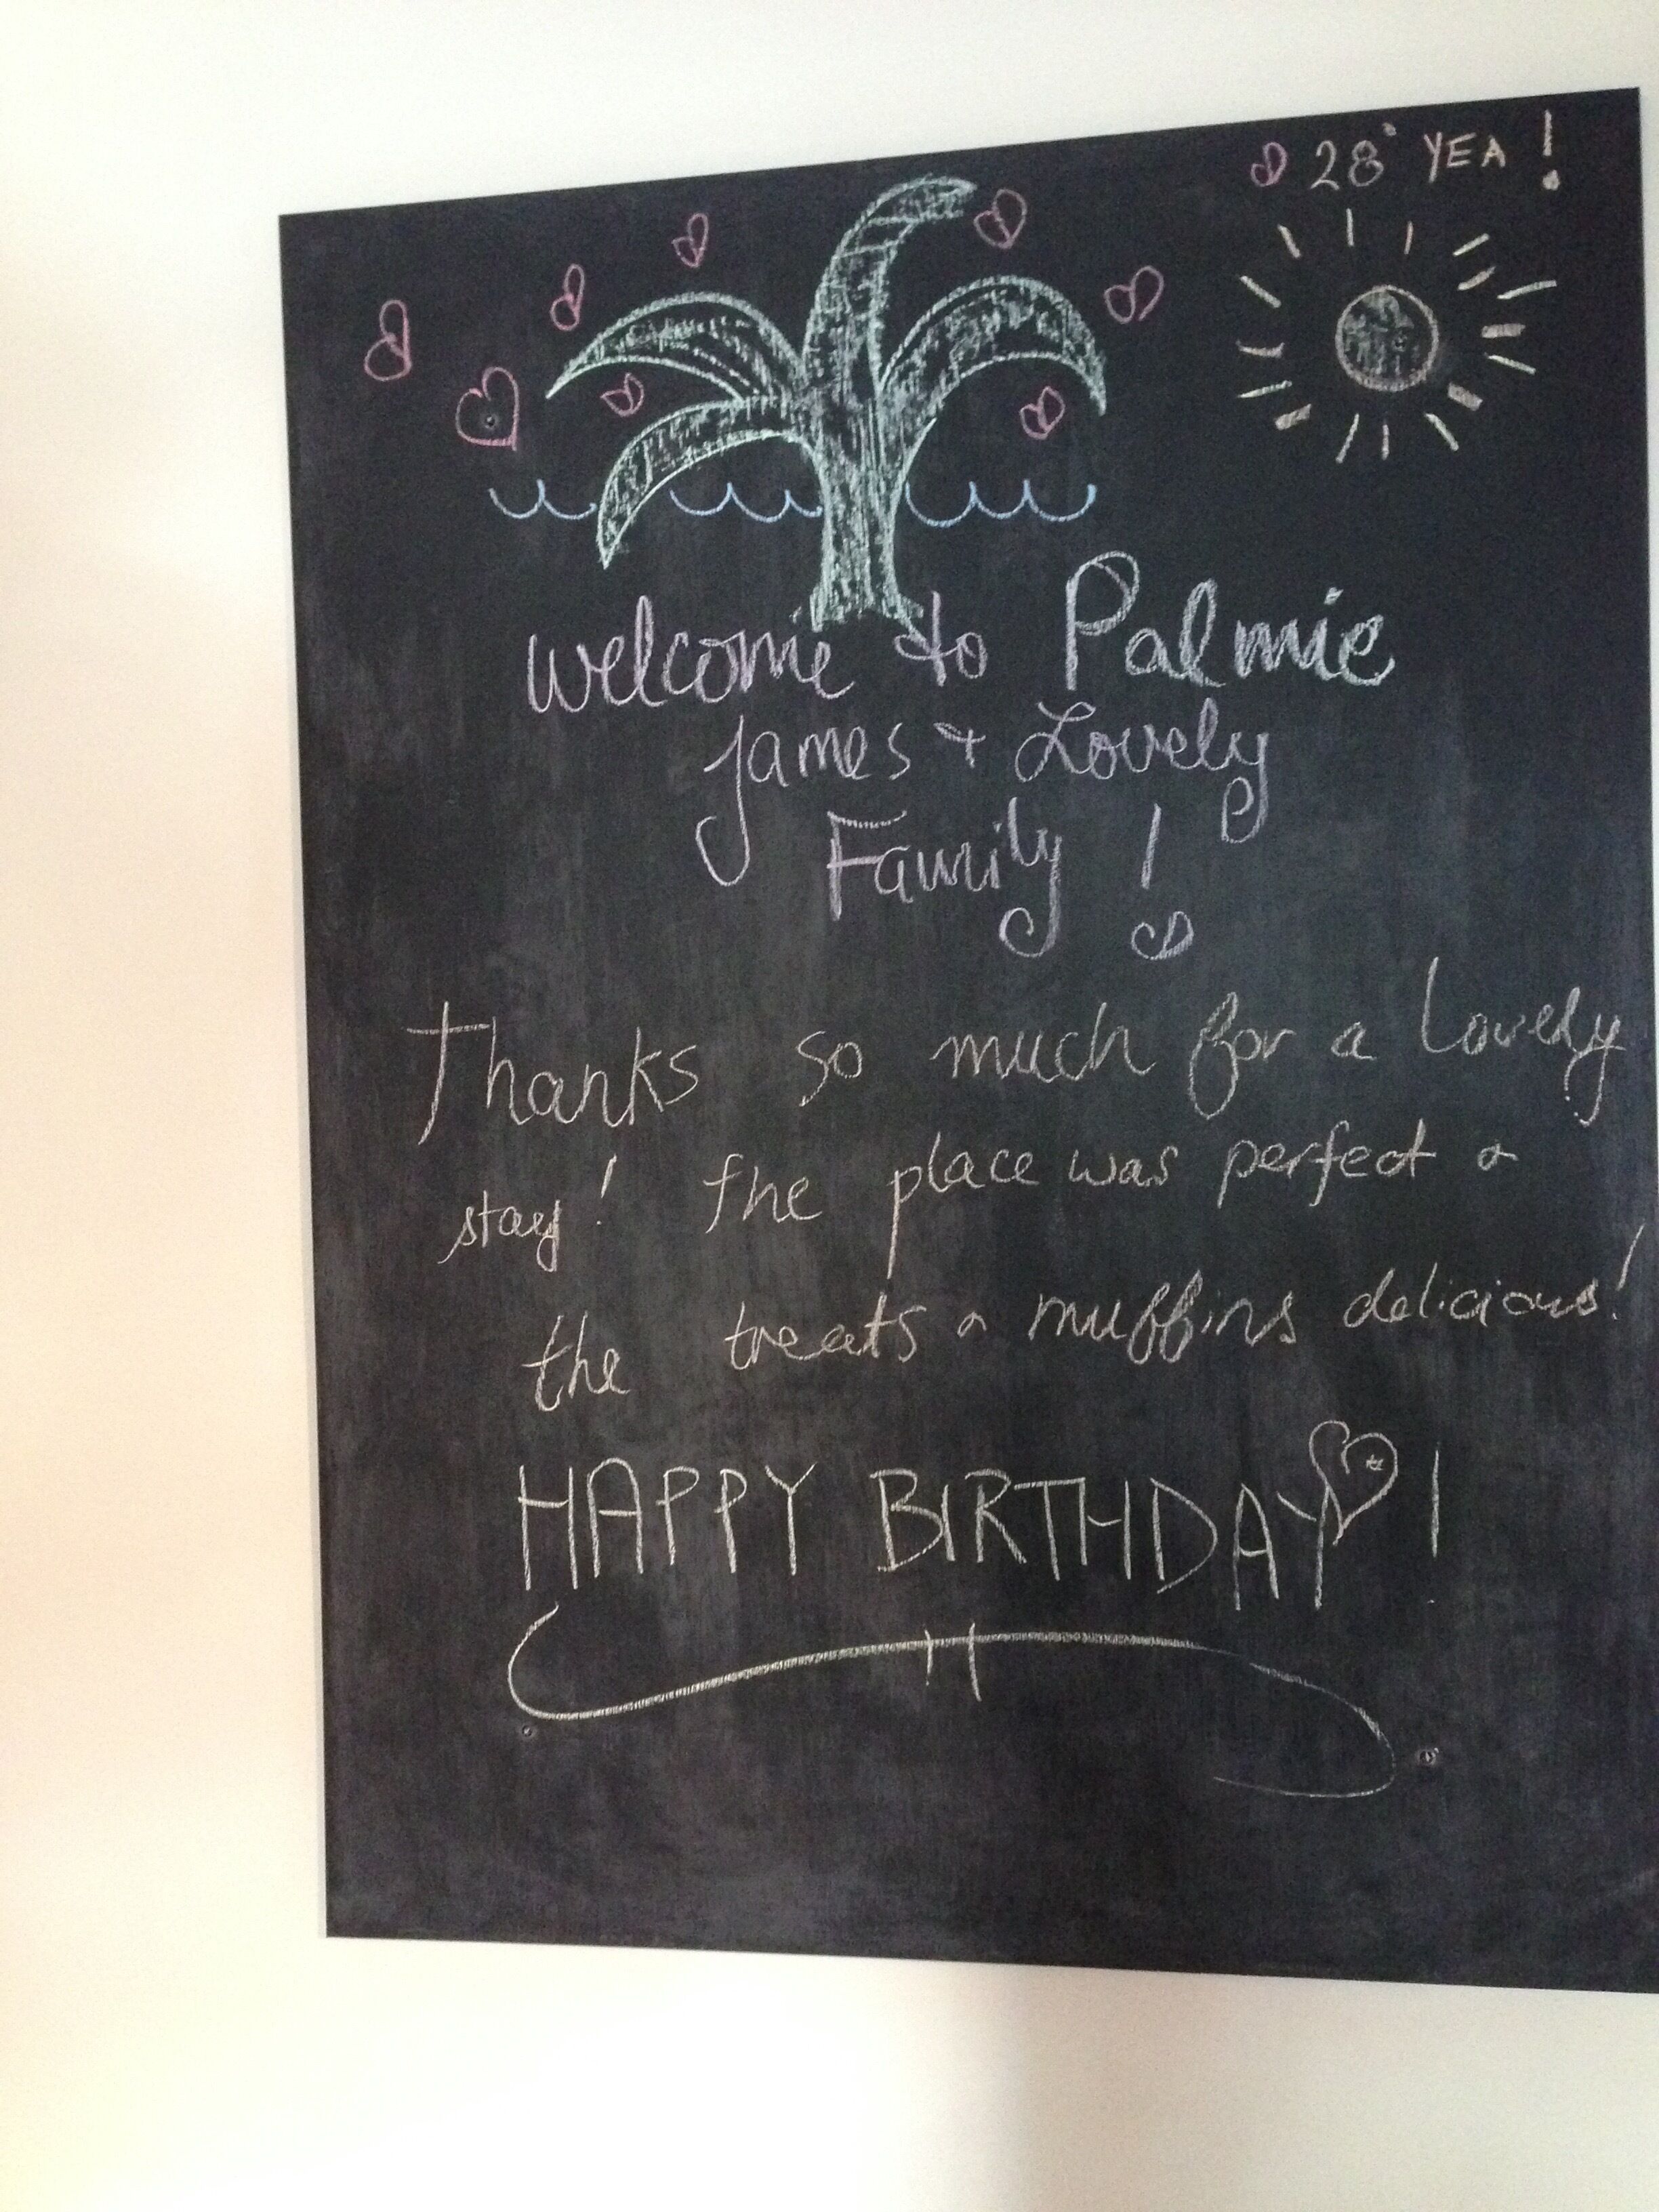 28° YEA!
Welcome to Palmie
James + Lovely
Family!
Thanks so much for a lovely
stay! The place was perfect &
the treats & muffins delicious!
HAPPY BIRTHDAY!